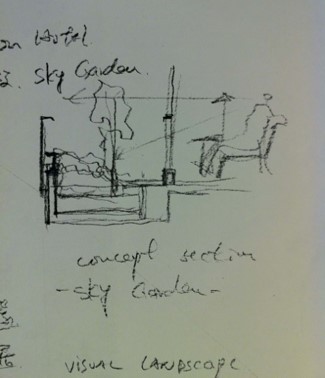 Hotel
Sky Garden.
concept section
- Sky Garden -
VISUAL LANDSCAPE